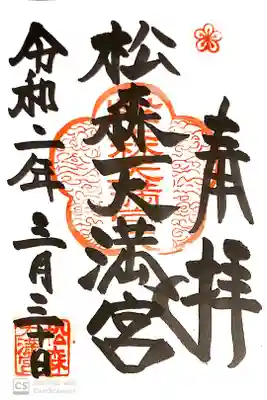 奉拝
松森天満宮
令和二年 三月三十日
CS